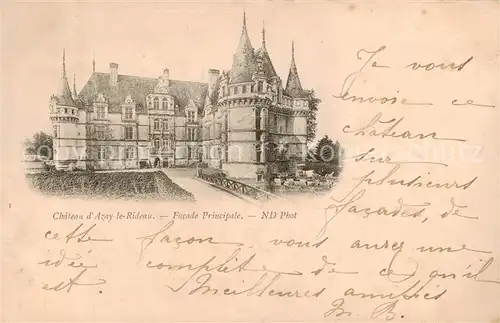 Je vous
envoie ce
château
sur
plusieurs
façades, de
Château d'Azay-le-Rideau. — Façade Principale. — ND Phot
cette façon vous aurez une
idée complète de ce qu'il
est. Meilleures amitiés
M. B.